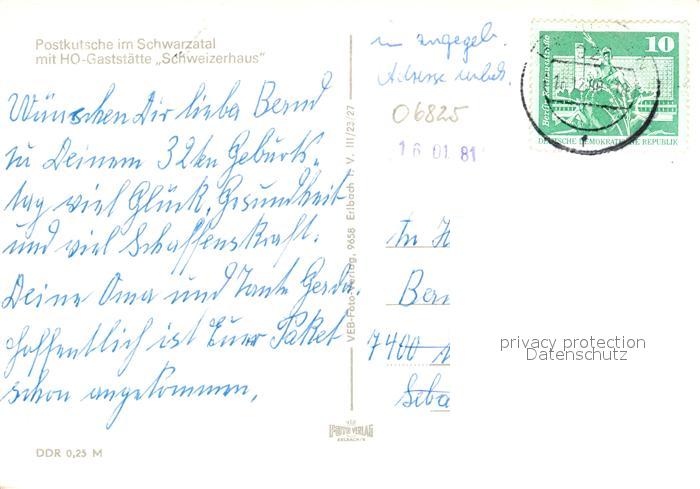 Postkutsche im Schwarzatal
mit HO-Gaststätte „Schweizerhaus“
Wünschen Dir lieber Bernd
zu Deinem 32ten Geburts-
tag viel Glück, Gesundheit
und viel Schaffenskraft.
Deine Oma und Tante Gerda.
Hoffentlich ist Euer Paket
schon angekommen.
DDR 0,25 M
VEB-Foto-Verlag, 9658 Erlbach i. V. III/23/27
FOTO VERLAG
ERLBACH/V
in angegeb.
Adresse unbek.
06825
16 01. 81
10
DEUTSCHE DEMOKRATISCHE REPUBLIK
An H
Ber
7400
Seba
privacy protection
Datenschutz